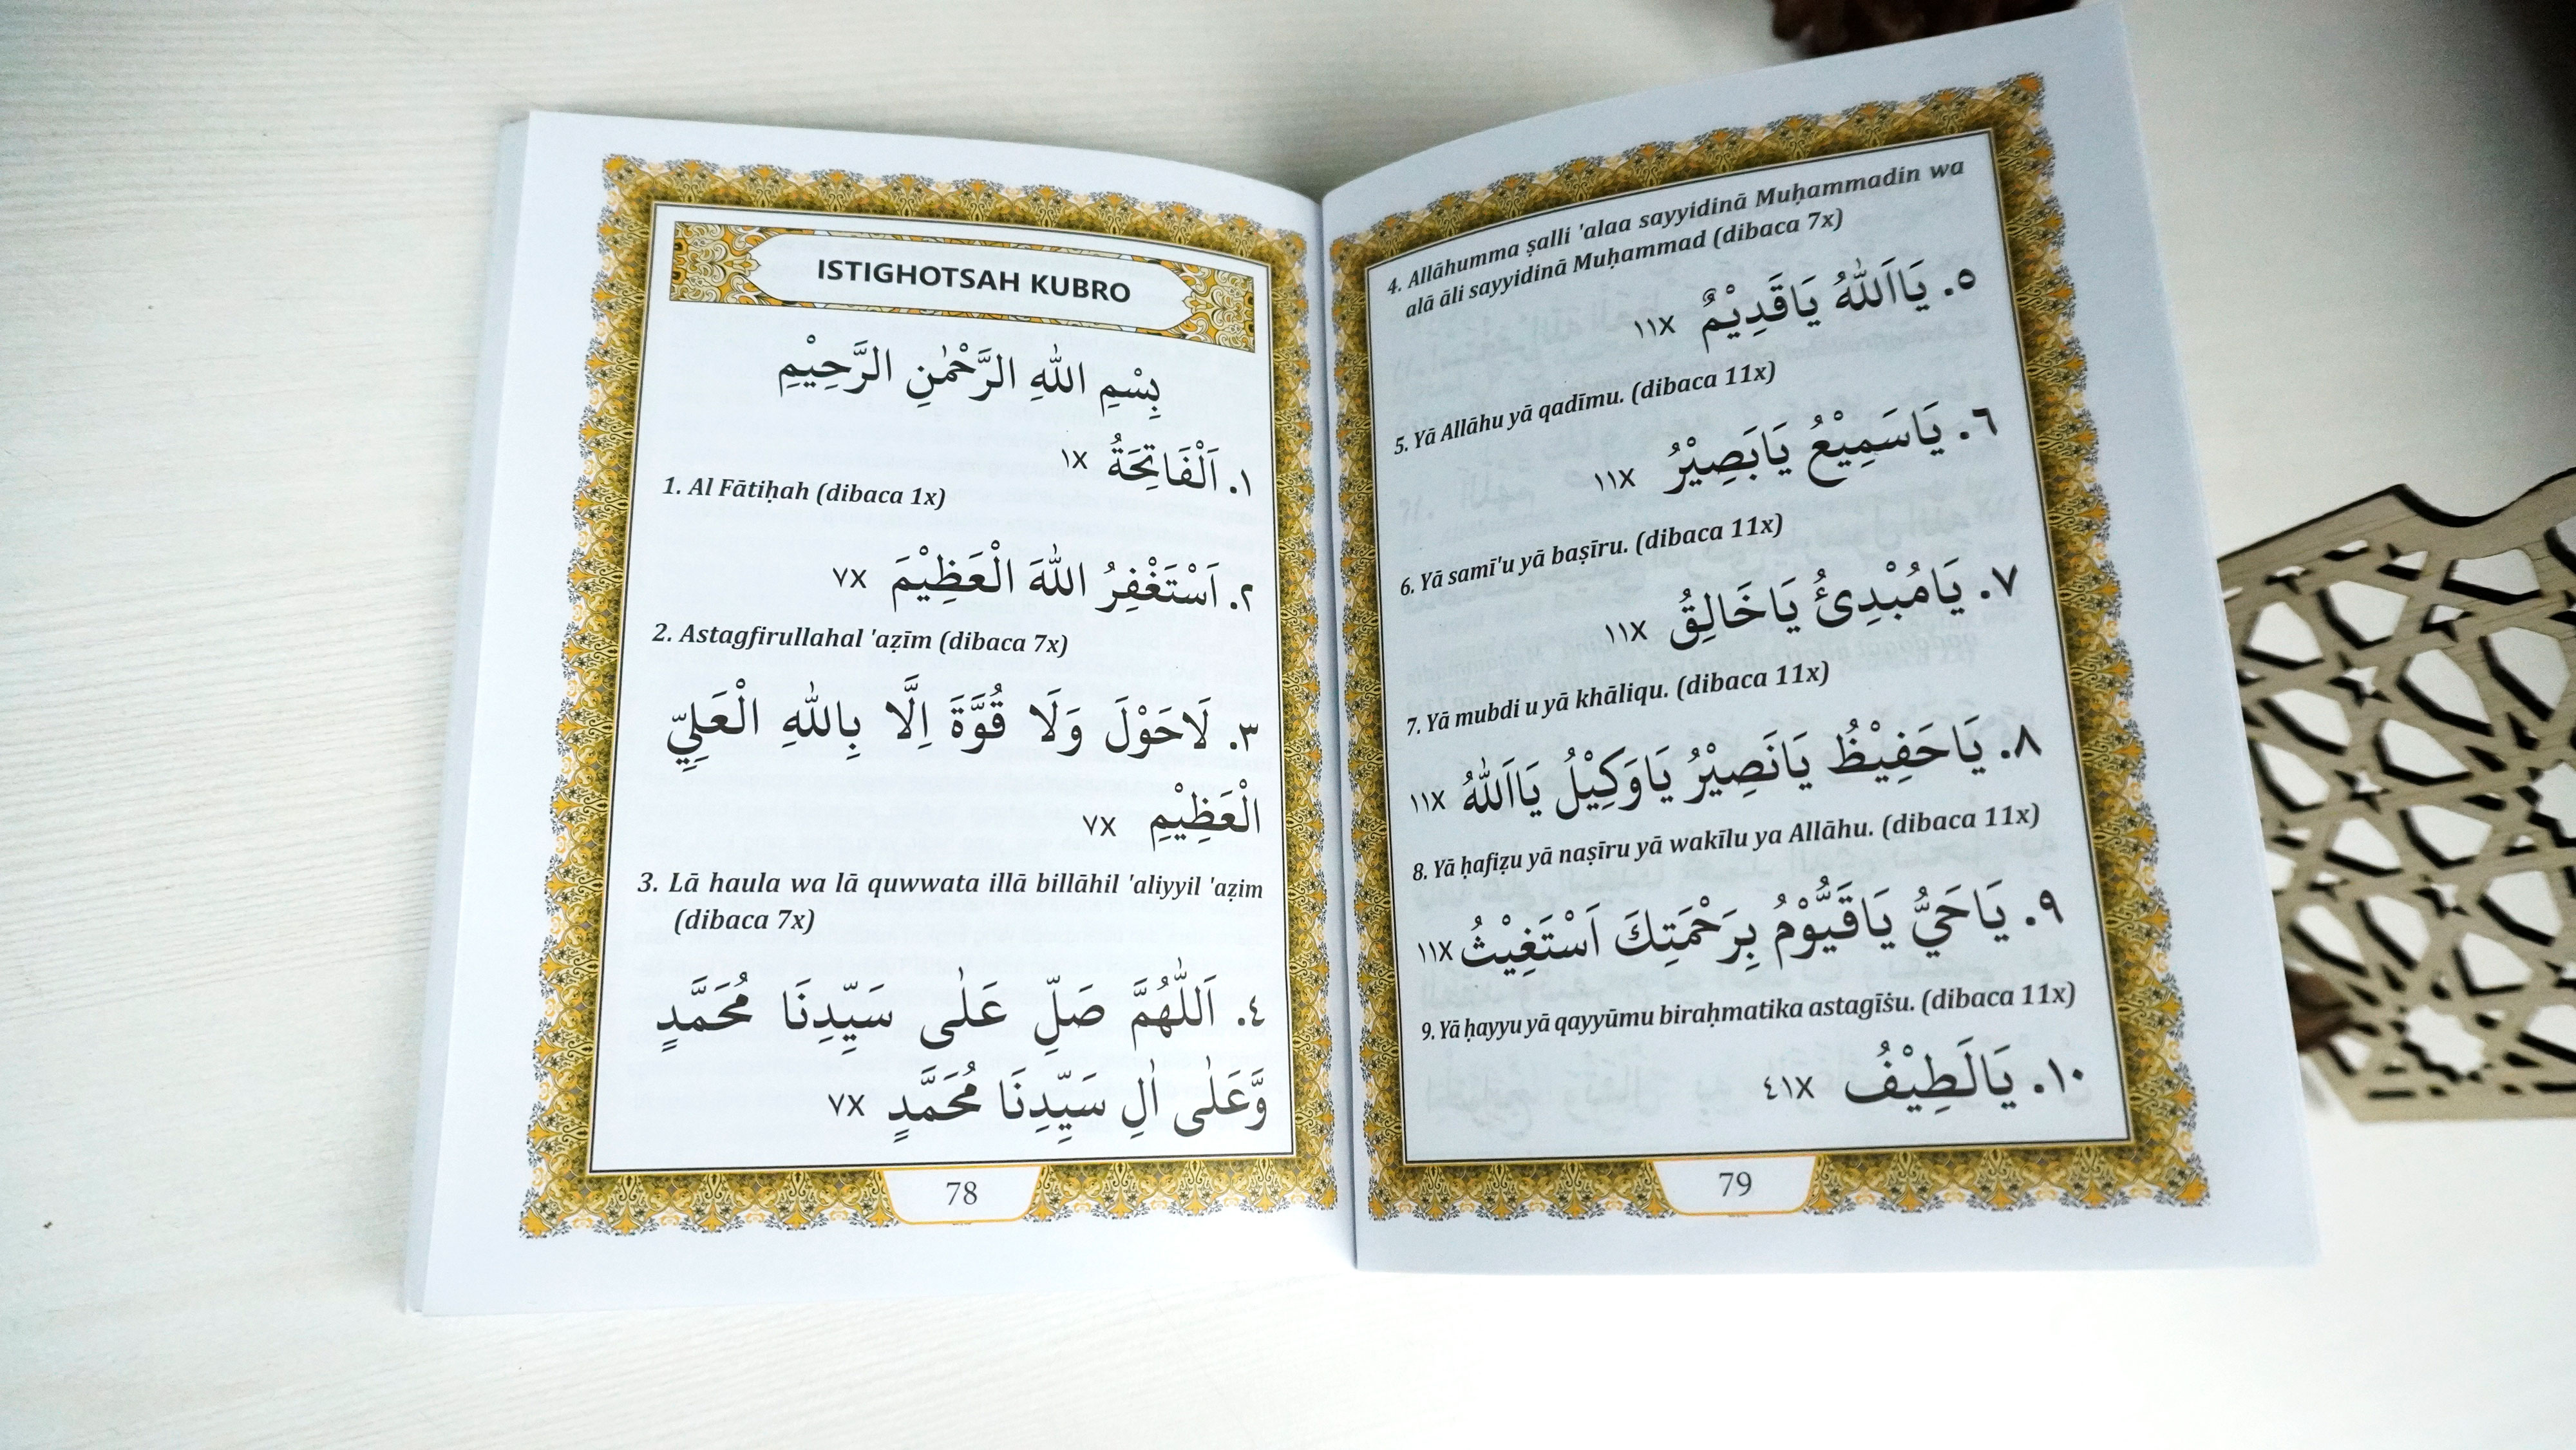 ISTIGHOTSAH KUBRO
بِسْمِ اللهِ الرَّحْمٰنِ الرَّحِيْمِ
١. اَلْفَاتِحَةُ ١x
1. Al Fātiḥah (dibaca 1x)
٢. اَسْتَغْفِرُ اللهَ الْعَظِيْمَ ٧x
2. Astagfirullahal 'aẓīm (dibaca 7x)
٣. لَاحَوْلَ وَلَا قُوَّةَ اِلَّا بِاللهِ الْعَلِيِّ
الْعَظِيْمِ ٧x
3. Lā haula wa lā quwwata illā billāhil 'aliyyil 'aẓim
(dibaca 7x)
٤. اَللّٰهُمَّ صَلِّ عَلٰى سَيِّدِنَا مُحَمَّدٍ
وَّعَلٰى اٰلِ سَيِّدِنَا مُحَمَّدٍ ٧x
78
4. Allāhumma ṣalli 'alaa sayyidinā Muḥammadin wa
alā āli sayyidinā Muḥammad (dibaca 7x)
٥. يَااَللهُ يَاقَدِيْمُ ١١x
5. Yā Allāhu yā qadīmu. (dibaca 11x)
٦. يَاسَمِيْعُ يَابَصِيْرُ ١١x
6. Yā samī'u yā baṣīru. (dibaca 11x)
٧. يَامُبْدِئُ يَاخَالِقُ ١١x
7. Yā mubdi u yā khāliqu. (dibaca 11x)
٨. يَاحَفِيْظُ يَانَصِيْرُ يَاوَكِيْلُ يَااَللهُ ١١x
8. Yā ḥafiẓu yā naṣīru yā wakīlu ya Allāhu. (dibaca 11x)
٩. يَاحَيُّ يَاقَيُّوْمُ بِرَحْمَتِكَ اَسْتَغِيْثُ ١١x
9. Yā ḥayyu yā qayyūmu biraḥmatika astagīṡu. (dibaca 11x)
١٠. يَالَطِيْفُ ٤١x
79